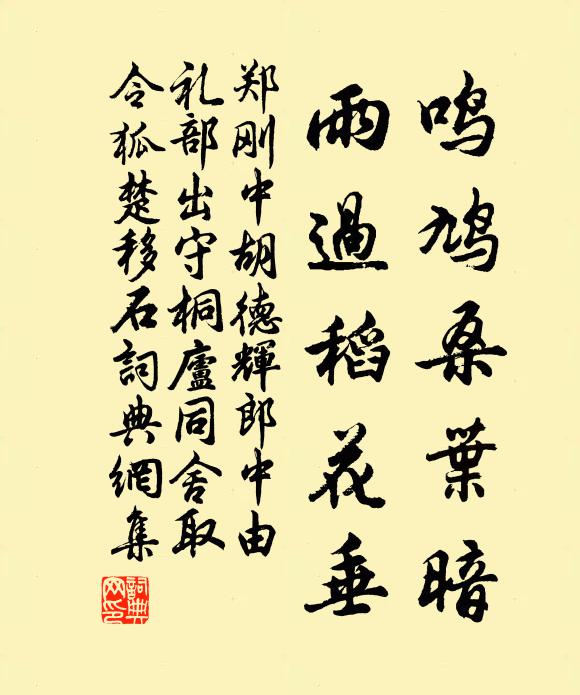 鸣鸠桑葉暗
雨過稻花垂
郑刚中胡德輝郎中由
礼部出守桐廬同舍取
令狐楚移石詞典網集
詞典網印